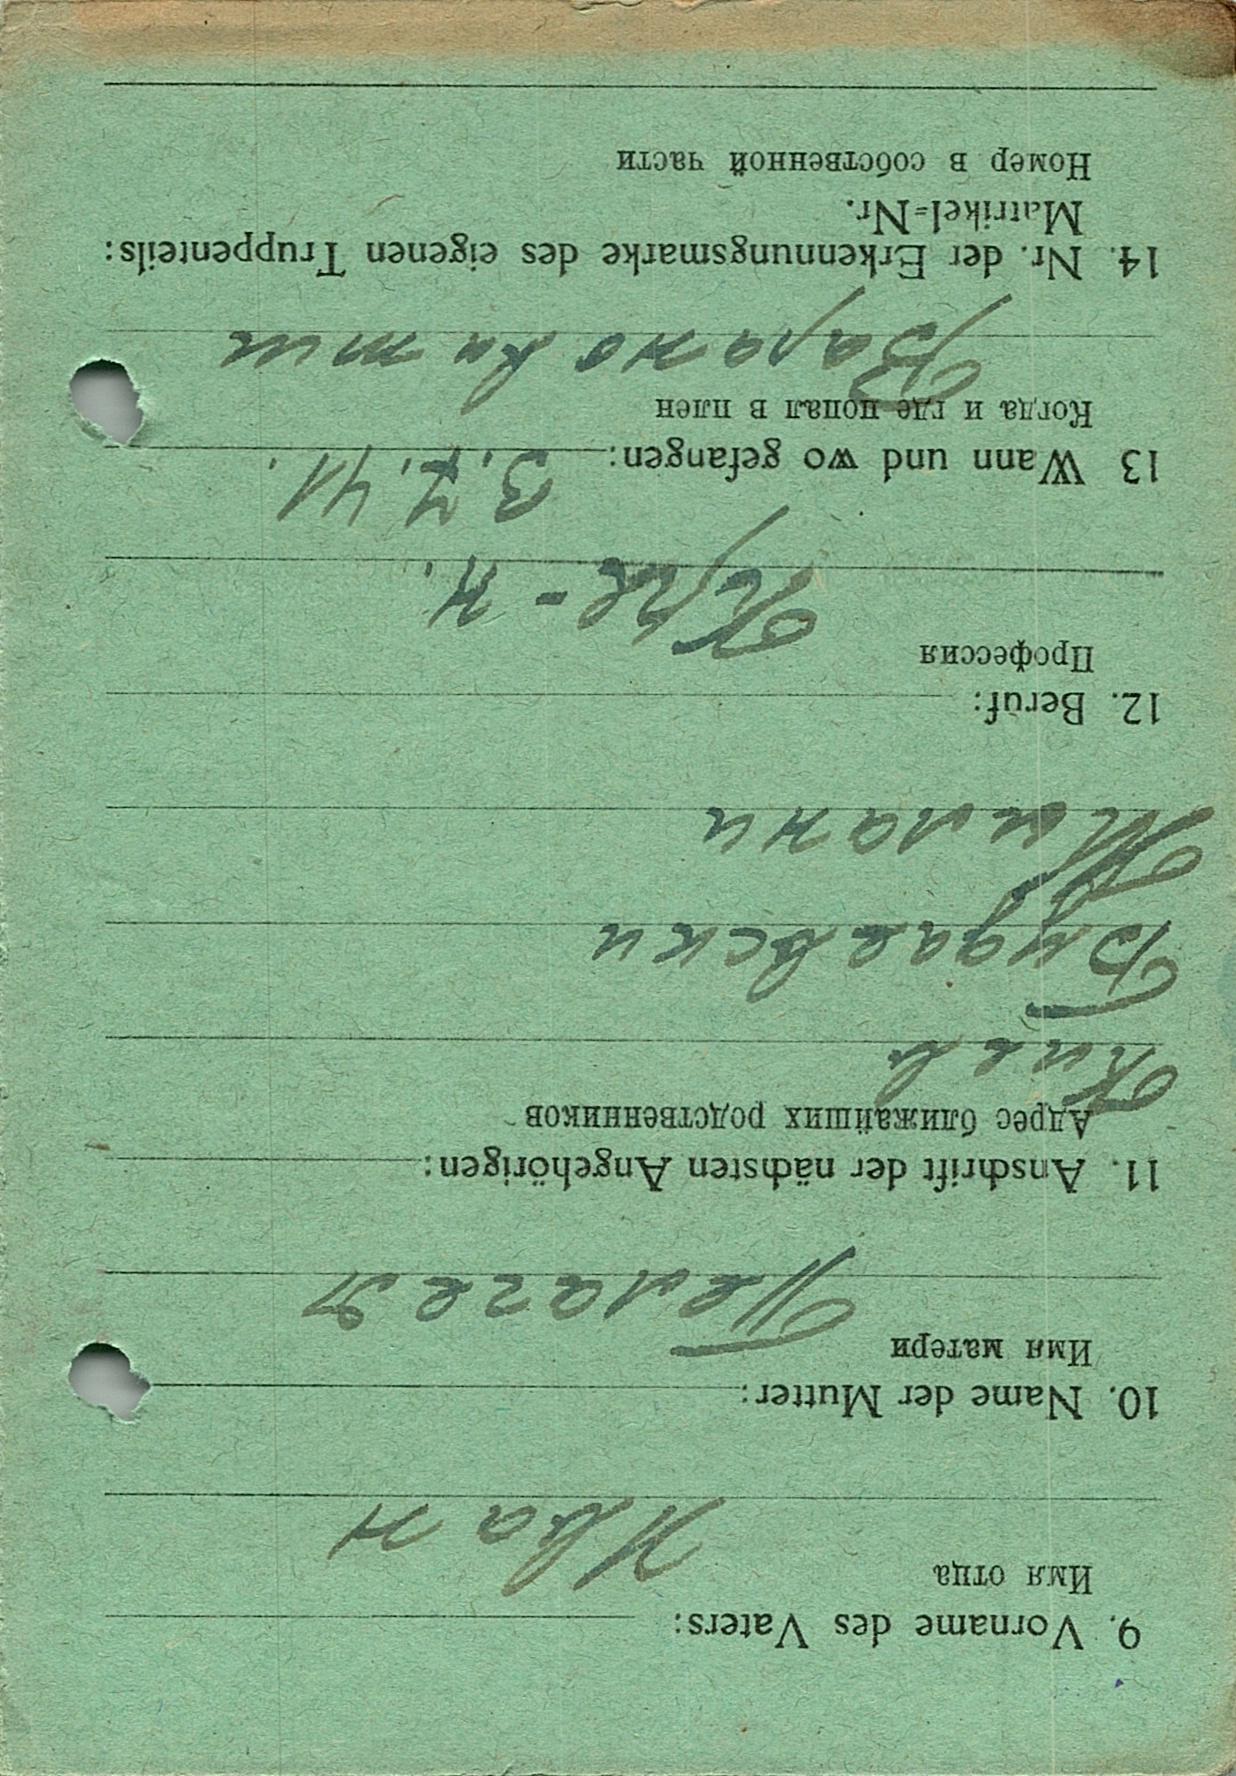 9. Vorname des Vaters:
Имя отца
Иван
10. Name der Mutter:
Имя матери
Пелагея
11. Anschrift der nächsten Angehörigen:
Адрес ближайших родственников
Киев
Будаевски
Жиляни
12. Beruf:
Профессия
Кре-н.
13 Wann und wo gefangen:
3.7.41.
Когда и где попал в плен
14. Nr. der Erkennungsmarke des eigenen Truppenteils:
Matrikel=Nr.
Номер в собственной части